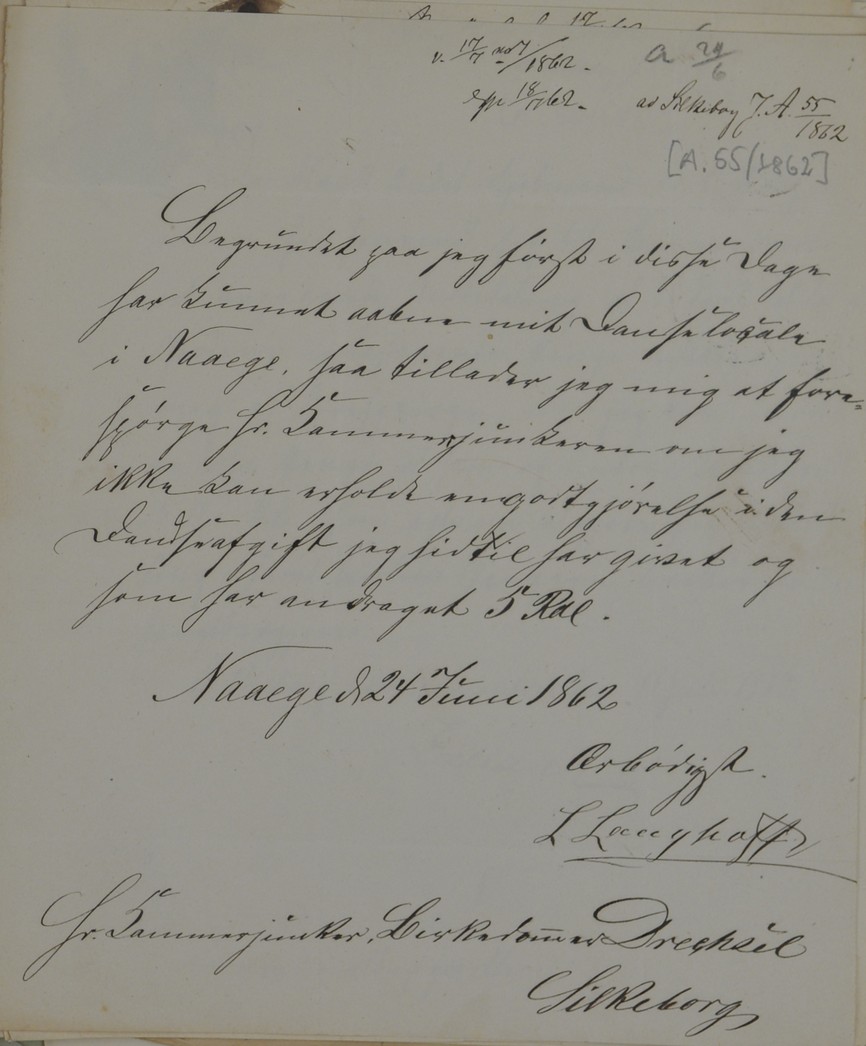 v. 17/7 1862.
exp 18/7 62.
a 24/6
ad Silkeborg J. A. 55/1862
[A. 55/1862]
Begrundet paa jeg först i disse Dage
har kunnet aabne mit Danselocale
i Naaege, saa tillader jeg mig at fore=
spörge Hr. Kammerjunkeren om jeg
ikke kan erholde en godtgjörelse i den
Dandseafgift jeg hidtil har givet og
som har andraget 5 Rdl.
Naaege d 24 Juni 1862
Ærbödigst.
L Langhoff
Hr. Kammerjunker, Birkedom̄er Drechsel
Silkeborg